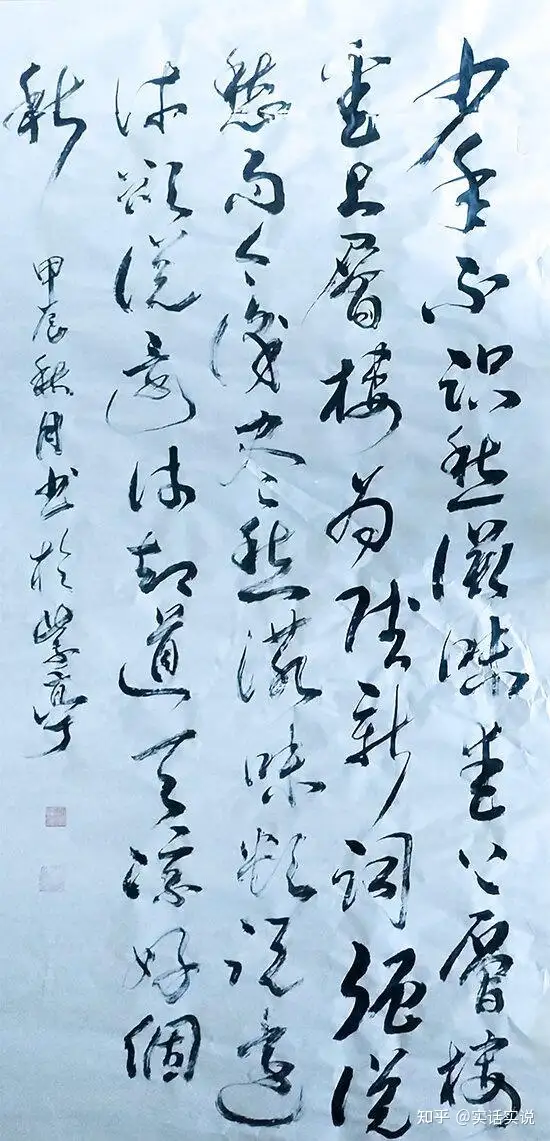 少年不识愁滋味爱上層楼
爱上層楼为赋新词强说
愁而今识尽愁滋味欲说还
休欲说还休却道天凉好個
秋
甲辰秋月书於
知乎 @实话实说